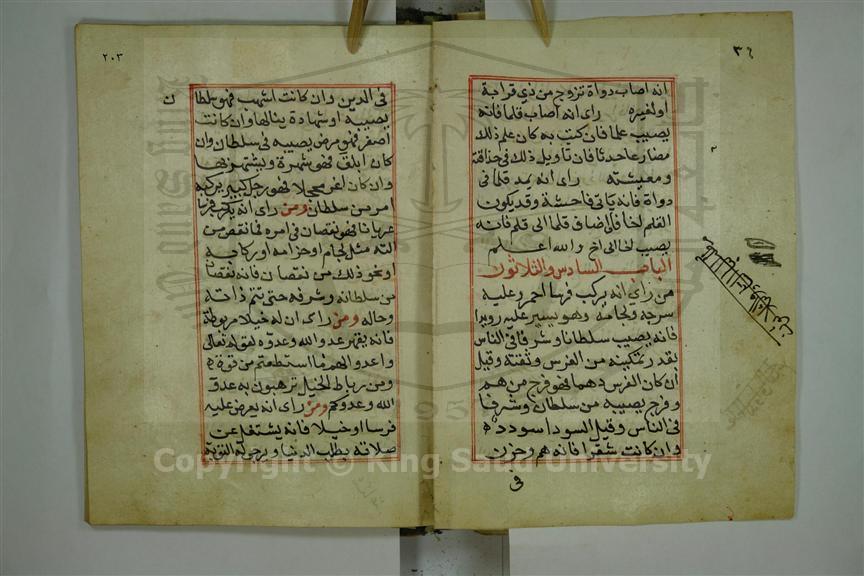 ٣٦
انه اصاب دواة تزوج من ذي قرابة
اولغيره رأى انه اصاب قلما فانه
يصيب علما فان كتب به كان علم ذلك
مضارعا حدثا فان تاويل ذلك في حذاقته
ومعيشته رأى انه يمد قلما في
دواة فانه ياتي فاحشة وقد يكون
القلم لخا فان اضاف قلما الى قلم فانه
يصب لخا الى اخ والله اعلم
الباب السادس والثلاثون
من رأى انه يركب فرسا احمر وعليه
سرجه ولجامه وهو يسير عليه رويدا
فانه يصيب سلطانا وشرفا في الناس
بقدر تمكينه من الفرس وثقته وقيل
ان كان الفرس دهما فهو فرج من هم
وفرج يصيبه من سلطان وشرفا
في الناس وقيل السودا سودد
وان كانت شقرا فانه هم وحزن
في
٢٠٣
ن
في الدين وان كانت اشهب فهو سلطا
يصيبه او شهادة ينالها وان كانت
اصفر فهو مرض يصيبه في سلطان وان
كان ابلق فهو شهرة ويشتهر بها
وان كان اغر محجلا فهو رجل كبير يركبه
امر من سلطان ومن رأى انه يركب فرسا
عريانا فهو نقصان في امره فما نقص من
آلته مثل لجام او حزامه او ركابه
او نحو ذلك من نقصان فانه نقصان
من سلطانه وشرفه حتى تتم ذاته
وحاله ومن رأى ان له خيلا مربوطة
فانه يقهر عدو الله وعدوه لقوله تعالى
واعدوا لهم ما استطعتم من قوة
ومن رباط الخيل ترهبون به عدو
الله وعدوكم ومن رأى انه يعرض عليه
فرسا او خيلا فانه يشتغل عن
صلاته بطلب الدنيا ويرجو له التوبة
Copyright © King Saud University